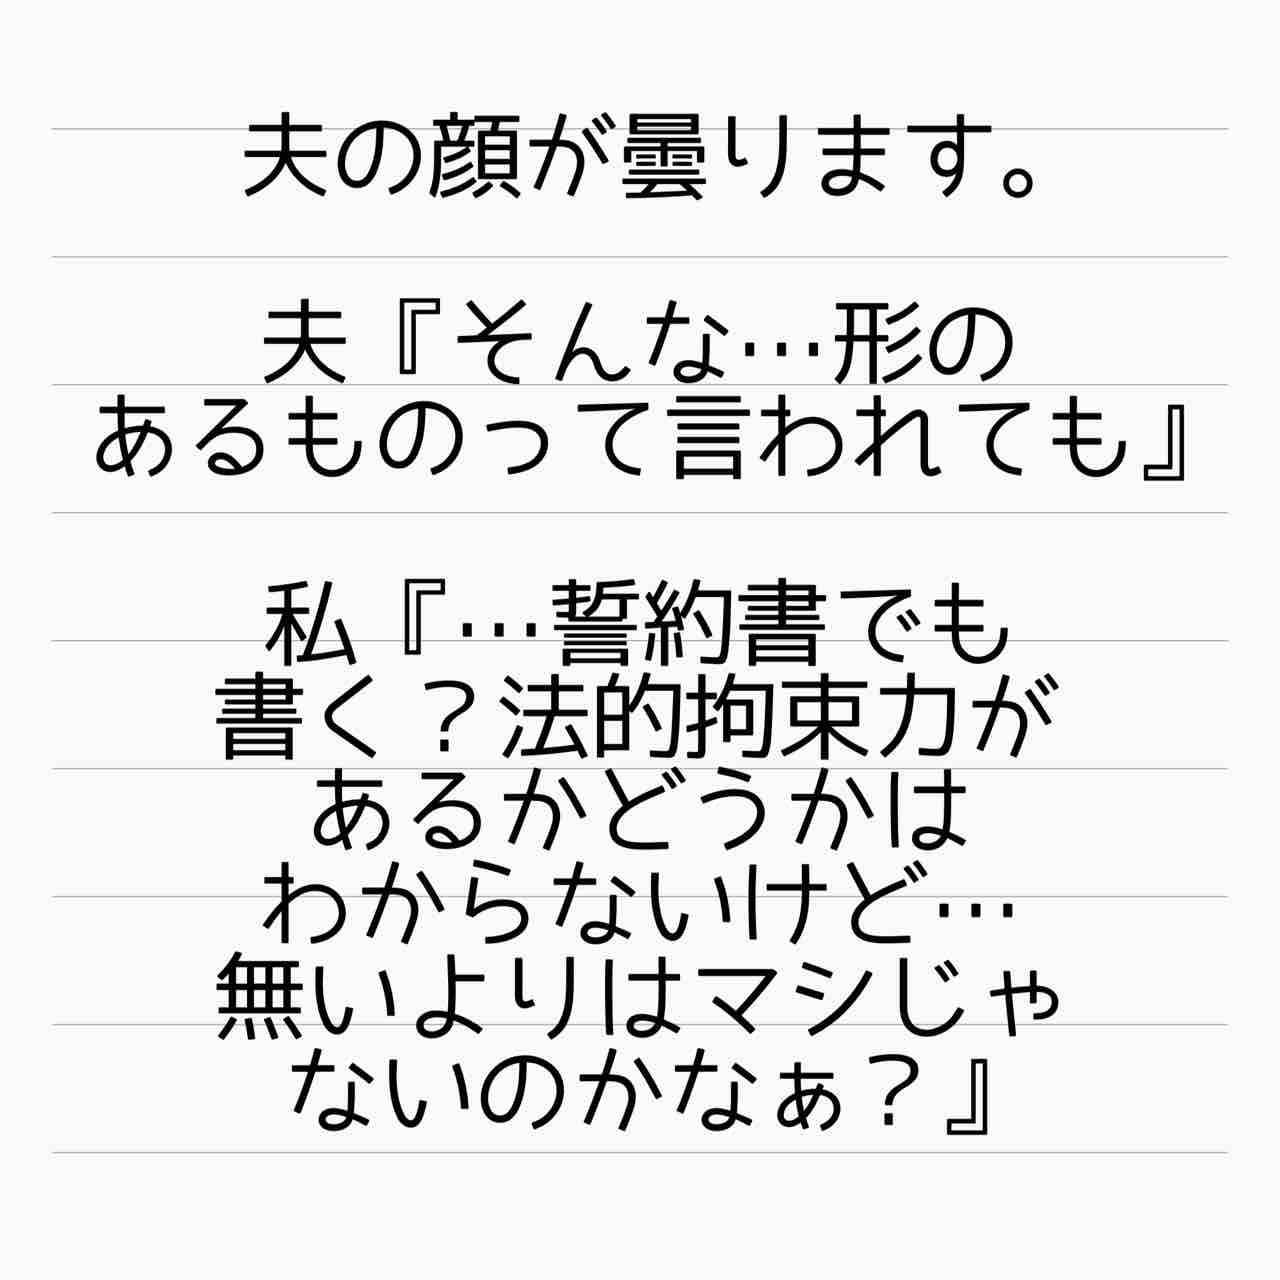 夫の顔が曇ります。
夫『そんな…形の
あるものって言われても』
私『…誓約書でも
書く？法的拘束力が
あるかどうかは
わからないけど…
無いよりはマシじゃ
ないのかなぁ？』